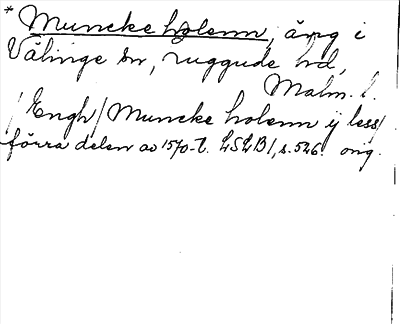 * Muncke holenn, äng i
Välinge sn, ruggude hd,
Malm. l.
/Engh/ Muncke holenn ij less/
förra delen av 1570-t. LSLB1, s. 526. orig.